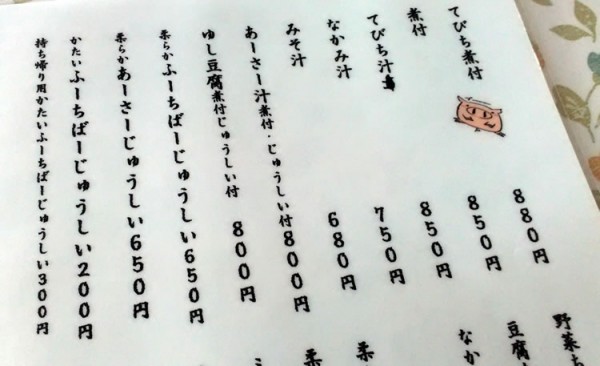 てびち煮付 880円
煮付 850円
てびち汁 850円
なかみ汁 750円
みそ汁 680円
あーさー汁煮付・じゅうしい付 800円
ゆし豆腐煮付じゅうしい付 800円
柔らかふーちばーじゅうしい 650円
柔らかあーさーじゅうしい 650円
かたいふーちばーじゅうしい 200円
持ち帰り用かたいふーちばーじゅうしい 300円
野菜
豆腐
なか
柔
柔